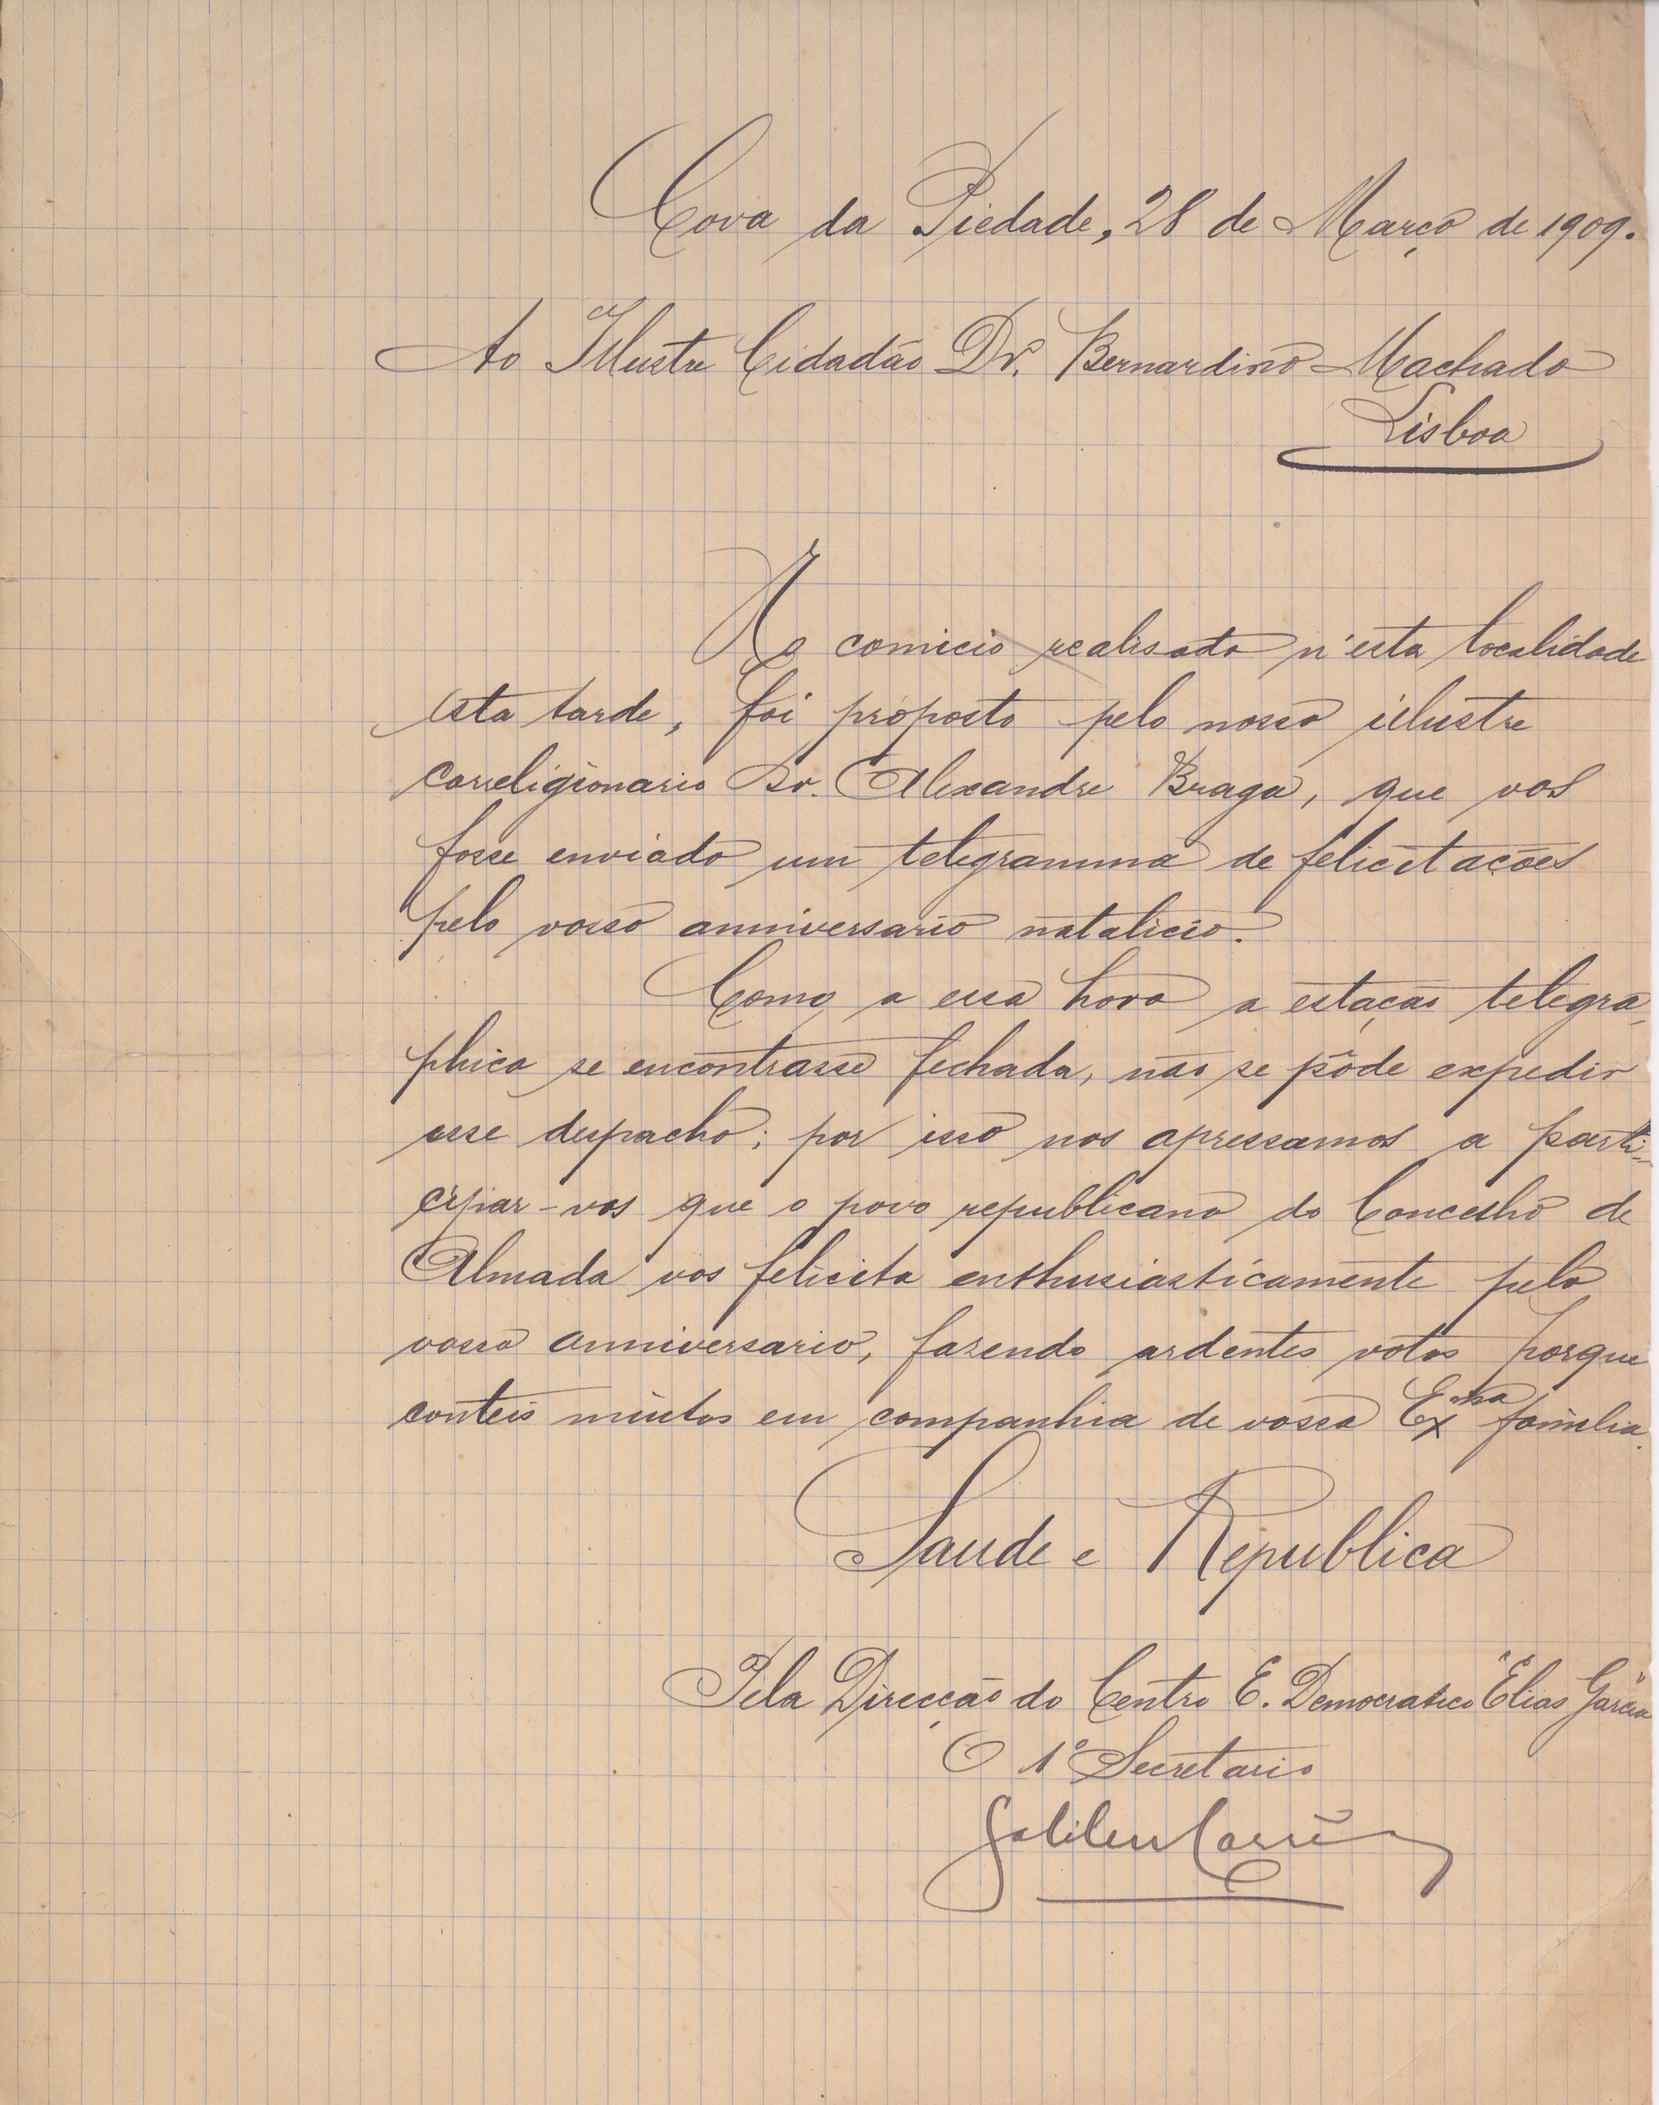 Cova da Piedade, 28 de Março de 1909.
Ao Illustre Cidadão Dr. Bernardino Machado
Lisboa
No comicio realisado n'esta localidade
esta tarde, foi proposto pelo nosso illustre
correligionario Dr. Alexandre Braga, que vos
fosse enviado um telegramma de felicitações
pelo vosso anniversario natalicio.
Como a essa hora a estação telegra-
phica se encontrasse fechada, não se pôde expedir
esse despacho; por isso nos apressamos a parti-
cipar-vos que o povo republicano do Concelho de
Almada vos felicita enthusiasticamente pelo
vosso anniversario, fazendo ardentes votos porque
conteis muitos em companhia de vossa Exma familia.
Saude e Republica
Pela Direcção do Centro E. Democratico "Elias Garcia"
O 1º Secretario
Galileu